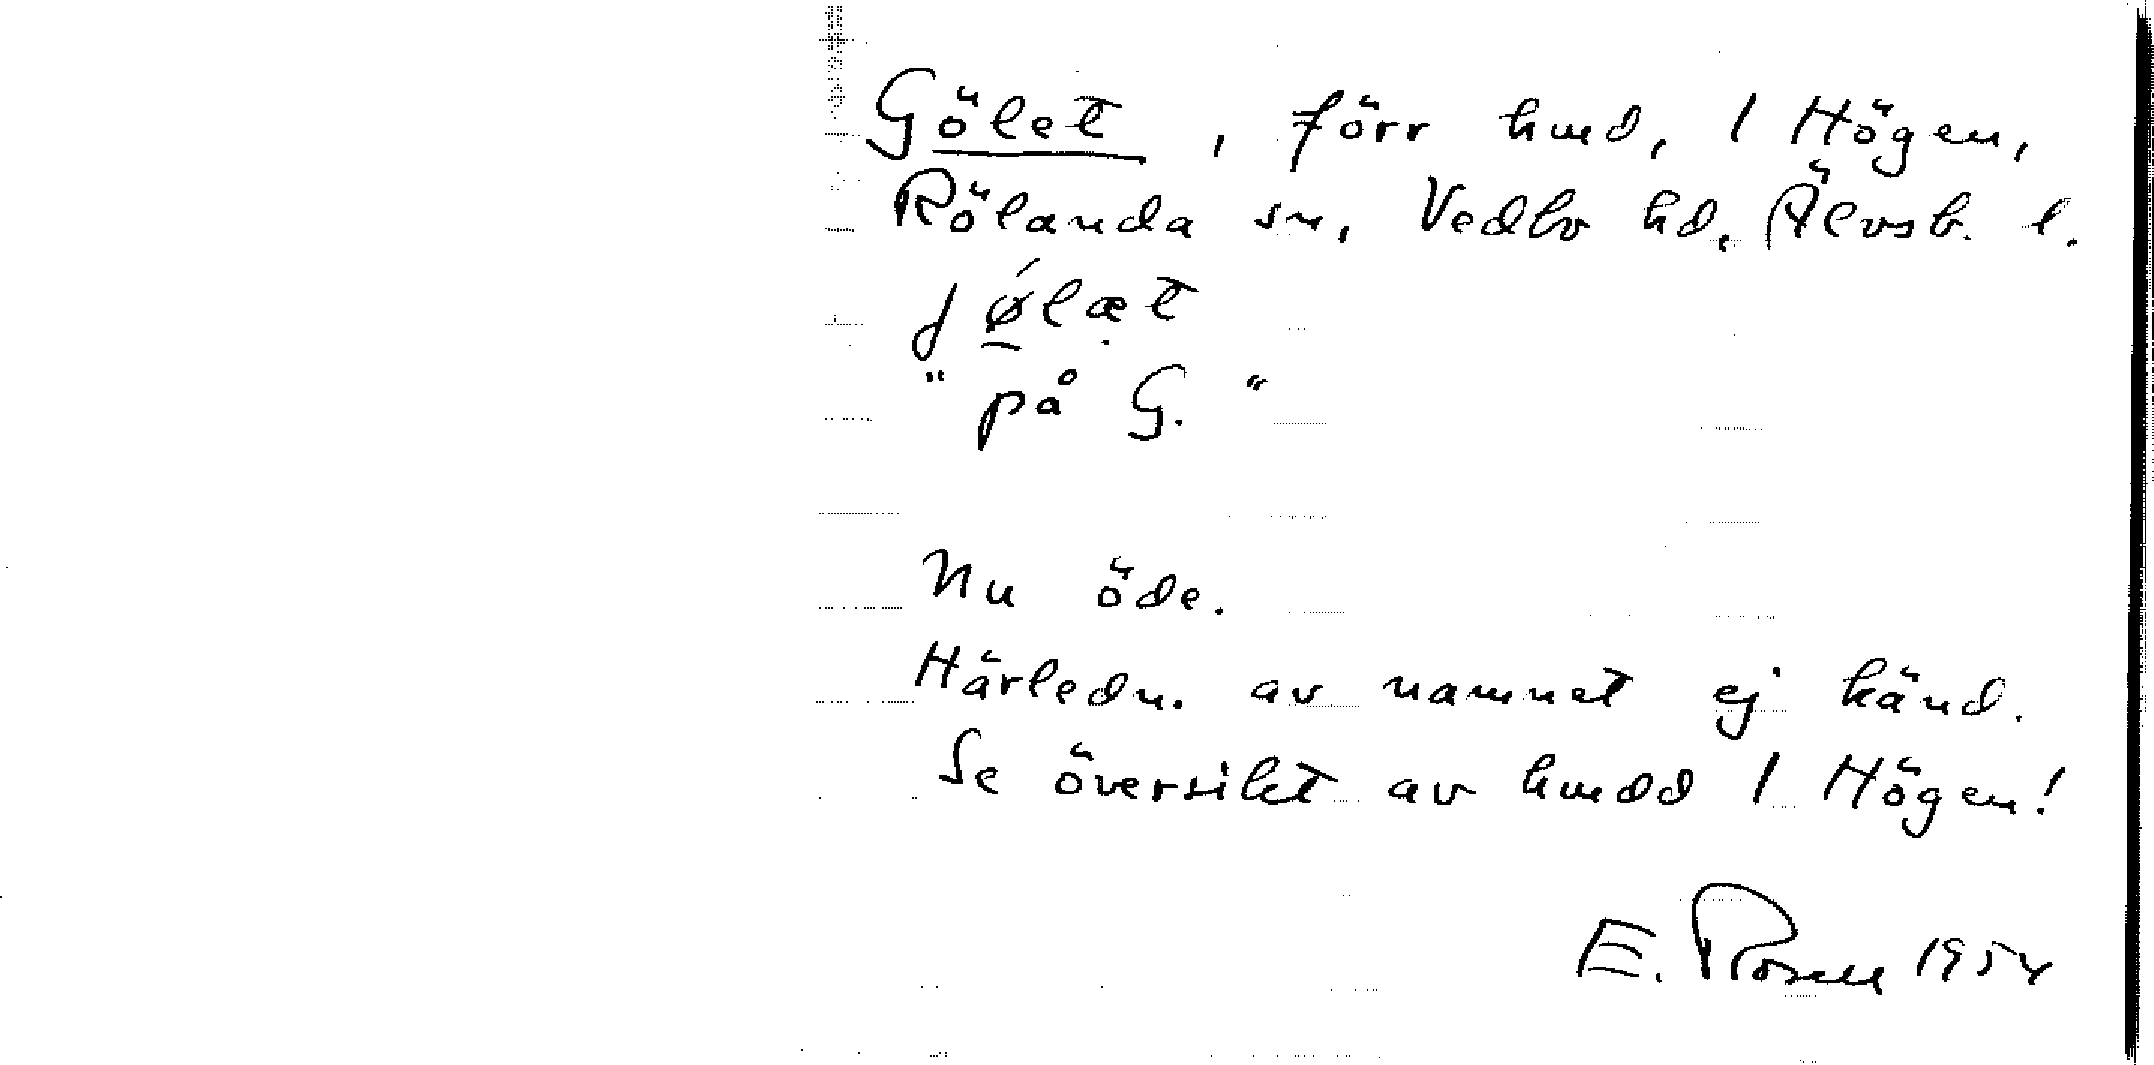 Gölet, förr hmd, 1 Högen,
Rölanda sn, Vedbo hd, Älvsb. l.
jǿ̱læ̣t
"på G."
Nu öde.
Härledn. av namnet ej känd.
Se översikt av hmdd 1 Högen!
E. Rosell 1954